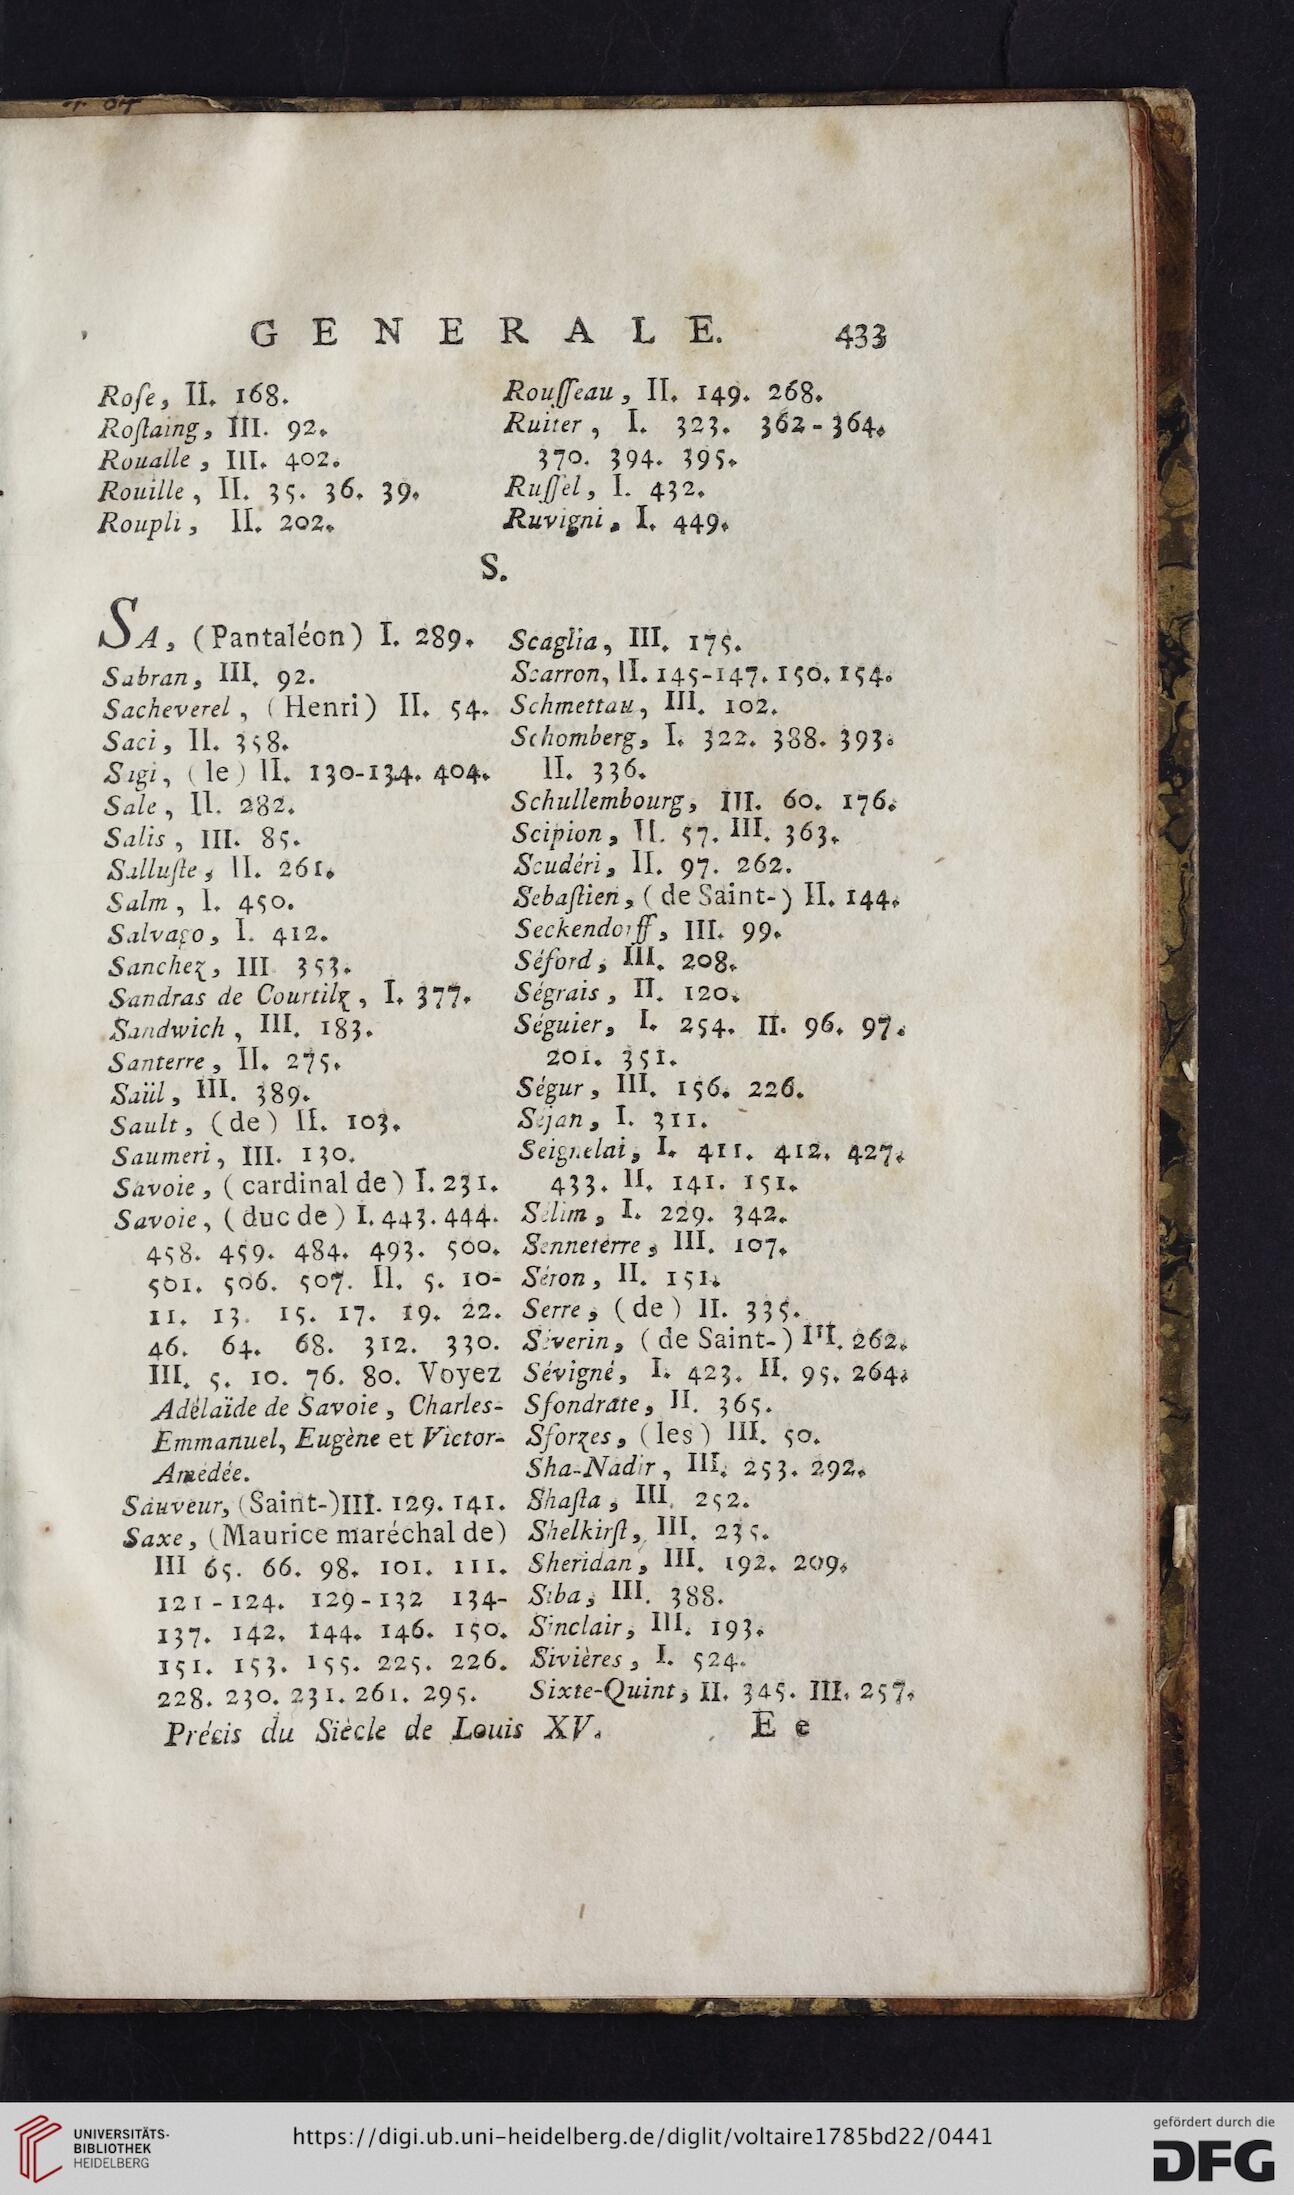 GENERALE. 433
Roſe, II. 168.
Roſtaing, III. 92.
Roualle, III. 402.
Rouille, II. 35. 36. 39.
Roupli, II. 202.
Rouſſeau, II. 149. 268.
Ruiter, I. 323. 362-364.
370. 394. 395.
Ruſſel, I. 432.
Ruvigni, I. 449.
S.
SA, (Pantaléon) I. 289.
Sabran, III. 92.
Sacheverel, (Henri) II. 54.
Saci, II. 358.
Sagi, (le) II. 130-134. 404.
Sale, II. 282.
Salis, III. 85.
Salluſte, II. 261.
Salm, I. 450.
Salvago, I. 412.
Sanchez, III. 353.
Sandras de Courtilz, I. 377.
Sandwich, III. 183.
Santerre, II. 275.
Saül, III. 389.
Sault, (de) II. 103.
Saumeri, III. 130.
Savoie, (cardinal de) I. 231.
Savoie, (duc de) I. 443. 444.
458. 459. 484. 493. 500.
501. 506. 507. II. 5. 10-
11. 13. 15. 17. 19. 22.
46. 64. 68. 312. 330.
III. 5. 10. 76. 80. Voyez
Adélaïde de Savoie, Charles-
Emmanuel, Eugène et Victor-
Amedée.
Sauveur, (Saint-) III. 129. 141.
Saxe, (Maurice maréchal de)
III 65. 66. 98. 101. 111.
121-124. 129-132 134-
137. 142. 144. 146. 150.
151. 153. 155. 225. 226.
228. 230. 231. 261. 295.
Scaglia, III. 175.
Scarron, II. 145-147. 150. 154.
Schmettau, III. 102.
Schomberg, I. 322. 388. 393.
II. 336.
Schullembourg, III. 60. 176.
Scipion, II. 57. III. 363.
Scudéri, II. 97. 262.
Sebaſtien, (de Saint-) II. 144.
Seckendorff, III. 99.
Séford, III. 208.
Ségrais, II. 120.
Séguier, I. 254. II. 96. 97.
201. 351.
Ségur, III. 156. 226.
Séjan, I. 311.
Seignelai, I. 411. 412. 427.
433. II. 141. 151.
Sélim, I. 229. 342.
Senneterre, III. 107.
Séron, II. 151.
Serre, (de) II. 335.
Séverin, (de Saint-) III. 262.
Sévigné, I. 423. II. 95. 264.
Sfondrate, II. 365.
Sforzes, (les) III. 50.
Sha-Nadir, III. 253. 292.
Shaſta, III. 252.
Shelkirſt, III. 235.
Sheridan, III. 192. 209.
Siba, III. 388.
Sinclair, III. 193.
Sivières, I. 524.
Sixte-Quint, II. 345. III. 257.
Précis du Siècle de Louis XV. E e
UNIVERSITÄTS-
BIBLIOTHEK
HEIDELBERG
https://digi.ub.uni-heidelberg.de/diglit/voltaire1785bd22/0441
gefördert durch die
DFG